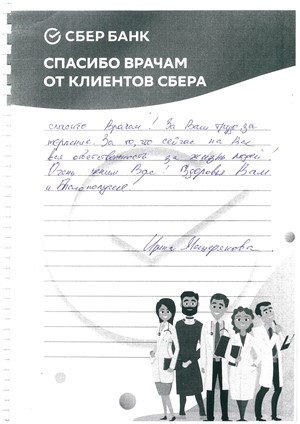 СБЕР БАНК
СПАСИБО ВРАЧАМ
ОТ КЛИЕНТОВ СБЕРА
спасибо Врачам! За Ваш труд, за
терпение. За то, что сейчас на Вас
вся ответственность за жизнь людей!
Очень ценим Вас! Здоровья Вам
и Благополучие!
Ирина